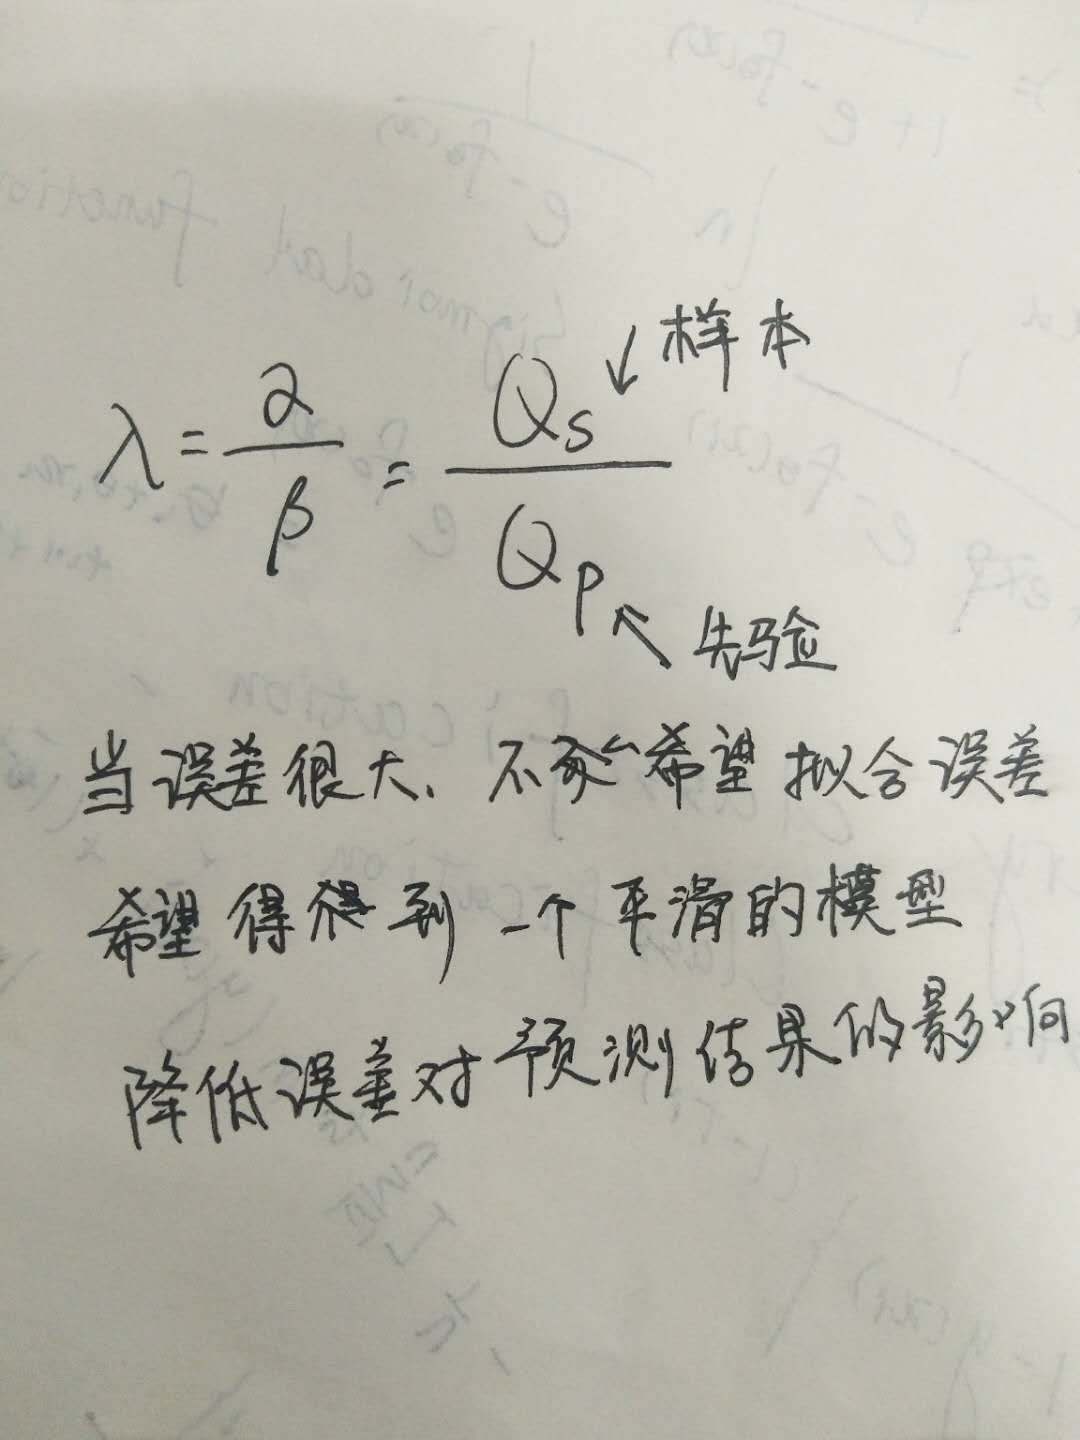 λ = α/β = Qs/Qp
↙ 样本
↖ 先验
当误差很大、不希望拟合误差
希望得得到一个平滑的模型
降低误差对预测结果的影响